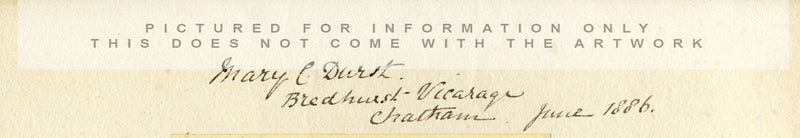 PICTURED FOR INFORMATION ONLY
THIS DOES NOT COME WITH THE ARTWORK
Mary C. Durst.
Bredhurst Vicarage
Chatham June 1886.